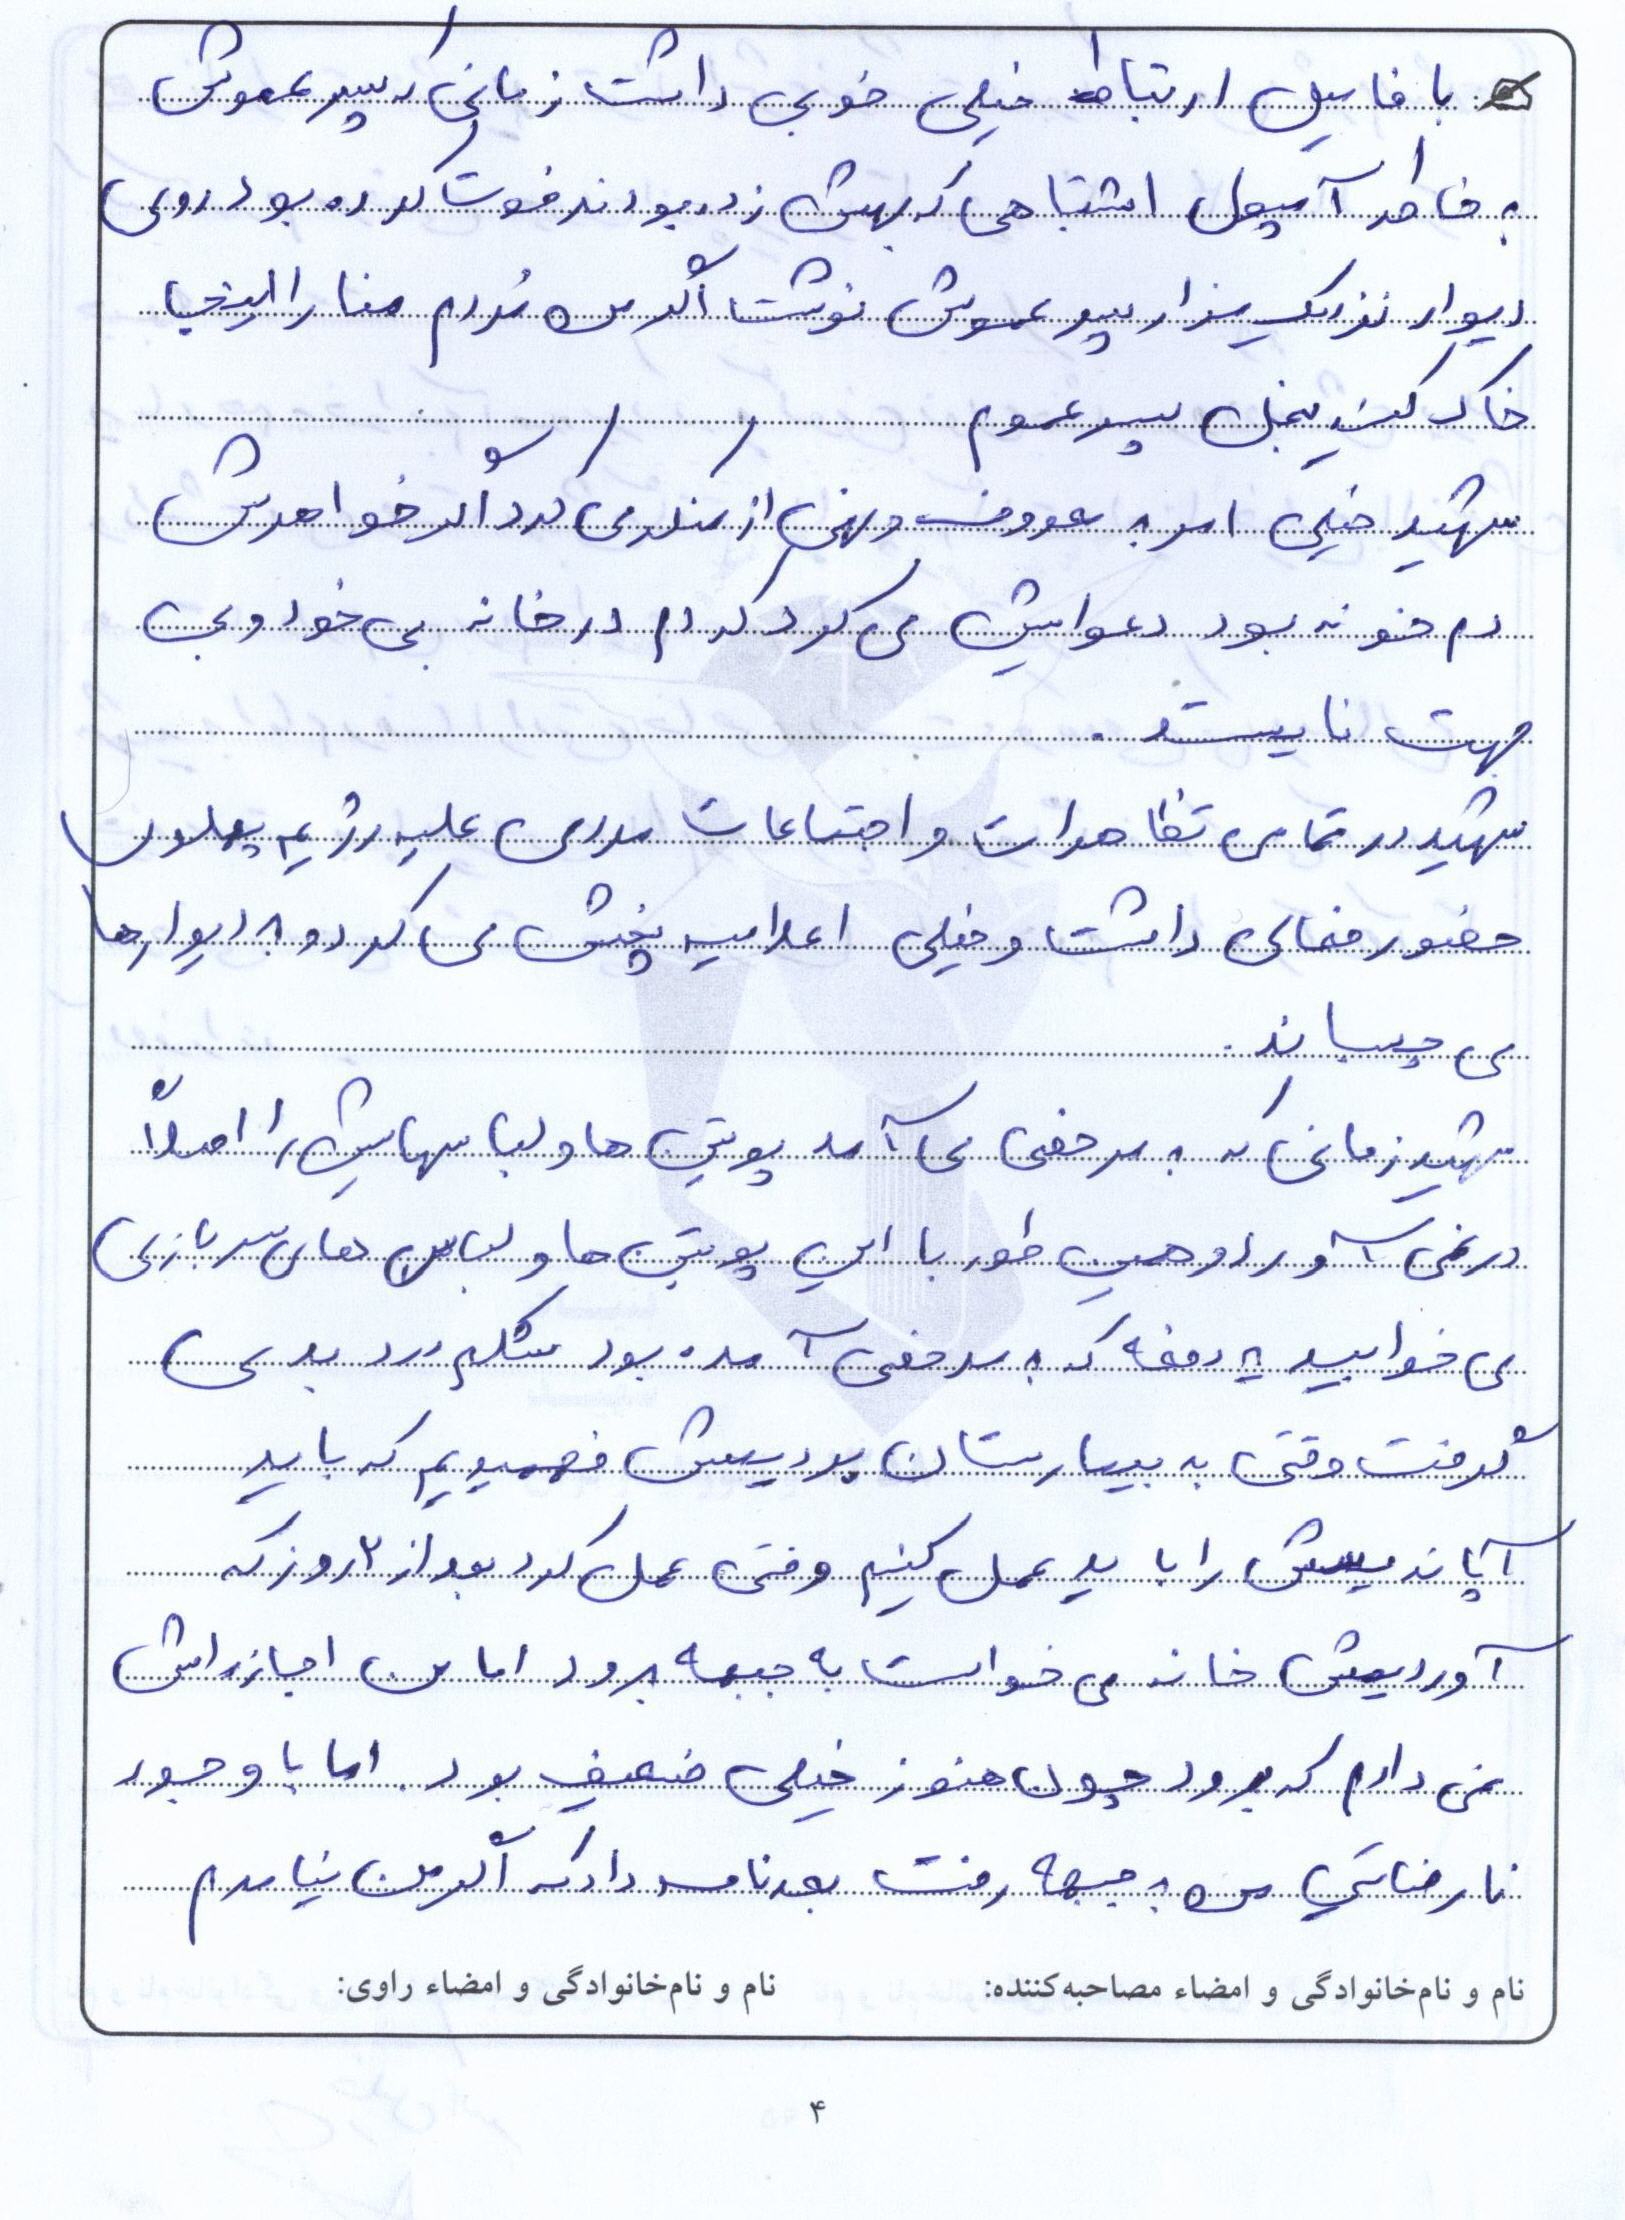 با فامیل ارتباط خیلی خوبی داشت زمانی که پسر عموش
به خاطر آمپول اشتباهی که بهش زده بودند فوت کرده بود روی
دیوار نزدیک مزار پسر عموش نوشت اگر من مُردم منا را اینجا
خاک کنید بغل پسر عموم
شهید خیلی امر به معروف و نهی از منکر می کرد اگر خواهرش
دم خونه بود دعوایش می کرد که دم در خانه بی خود و بی
جهت نایستد.
شهید در تمامی تظاهرات و اجتماعات مردمی علیه رژیم پهلوی
حضور فعالی داشت و خیلی اعلامیه پخش می کرد و به دیوارها
می چسباند.
شهید زمانی که به مرخصی می آمد پوتین ها و لباسهایش را اصلاً
در نمی آورد و همین طور با این پوتین ها و لباس های سربازی
می خوابید یه دفعه که به مرخصی آمده بود شکمم درد بدی
گرفت وقتی به بیمارستان بردیمش فهمیدیم که باید
آپاندیسش را باید عمل کنیم وقتی عمل کرد بعد از ۲ روز که
آوردیمش خانه می خواست به جبهه برود اما من اجازه اش
نمی دادم که برود چون هنوز خیلی ضعیف بود. اما با وجود
نارضایتی من به جبهه رفت بعد نامه داد که اگر من نیامدم
نام و نام‌خانوادگی و امضاء مصاحبه‌کننده: نام و نام‌خانوادگی و امضاء راوی:
۴